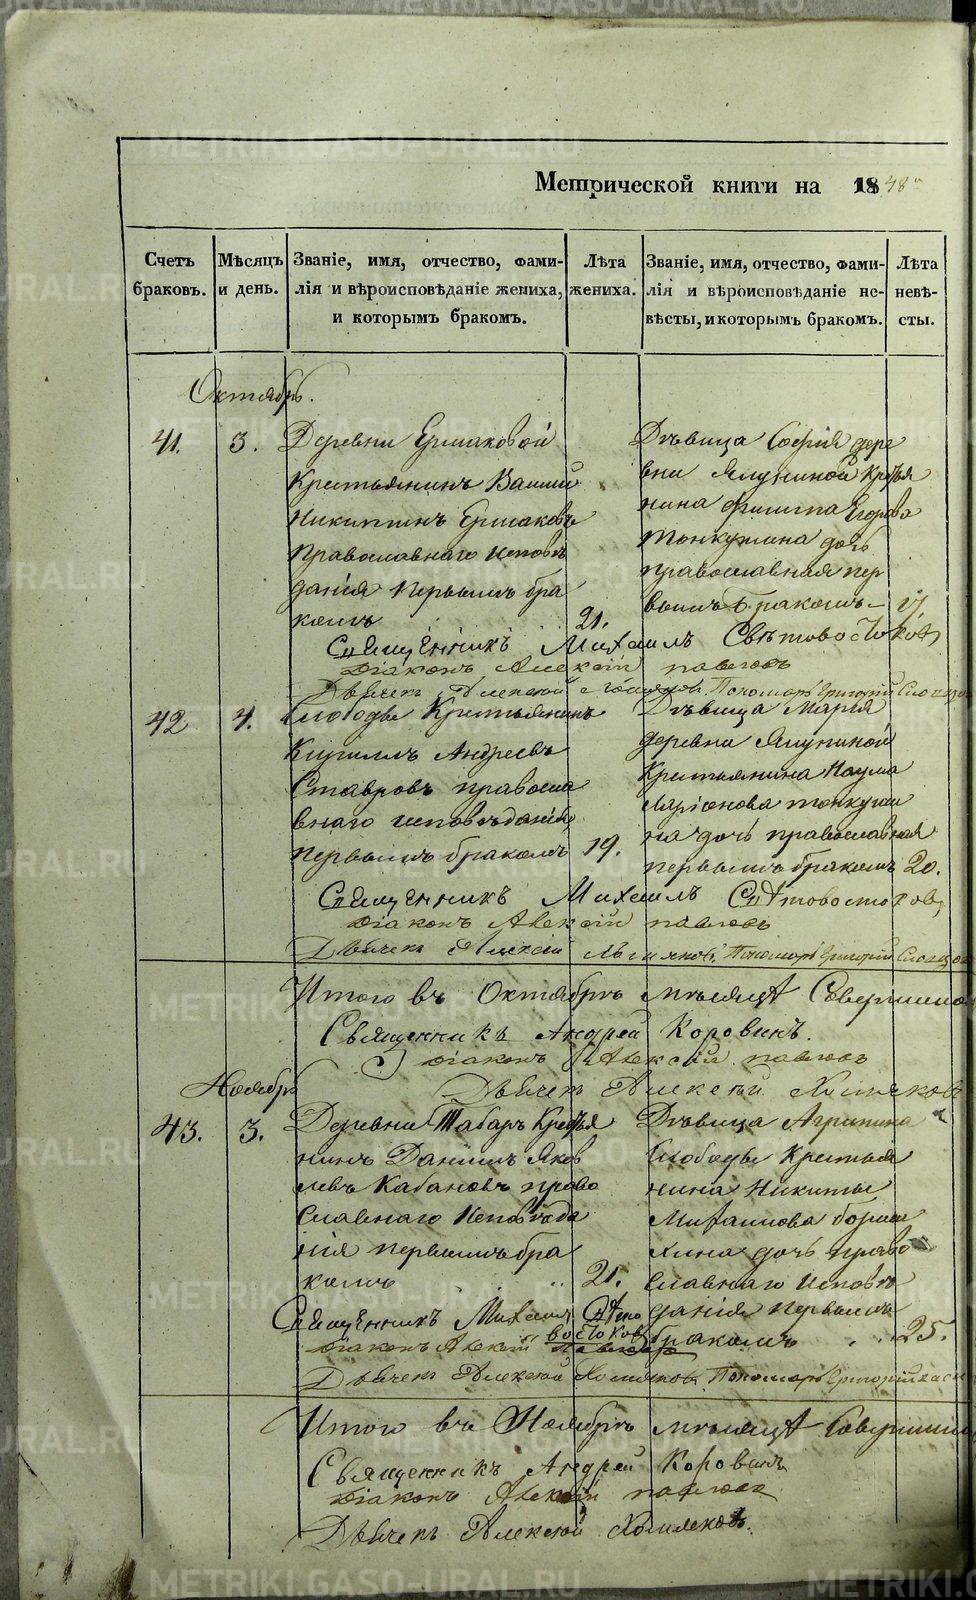 Метрической книги на 1848
Счетъ браковъ.
Мѣсяцъ и день.
Званіе, имя, отчество, фами-
лія и вѣроисповѣданіе жениха,
и которымъ бракомъ.
Лѣта
жениха.
Званіе, имя, отчество, фами-
лія и вѣроисповѣданіе не-
вѣсты, и которымъ бракомъ.
Лѣта
невѣ-
сты.
Октябрь.
41. 3.
Деревни Ермаковой
Крестьянинъ
Никитинъ Ермаковъ
Православнаго исповѣ
данія первымъ бра
комъ 21.
Дѣвица Софія дере
вни Ялуниной Крестья
нина Филипа Егорова
Тонкушина дочь
православная пер
вымъ бракомъ 17.
Священникъ Михаилъ Святовостоковъ
Діаконъ Алексій Павловъ
Дьячекъ Алексей Хомяковъ. Пономарь Григорій
42 4.
Слободы Крестьянинъ
Кириллъ Андреевъ
Ставровъ правосла
внаго исповѣданія
первымъ бракомъ 19.
Дѣвица Марія
деревни Ялуниной
Крестьянина Наума
Ларіонова тонкуши
на дочь православная
первымъ бракомъ 20.
Священникъ Михаилъ Святовостоковъ
Діаконъ Алексій Павловъ
Дьячекъ Алексей Хомяковъ. Пономарь Григорій
Итого въ Октябрѣ мѣсяцѣ
Священникъ Андрей Коровинъ.
Діаконъ Алексій Павловъ
Дьячекъ Алексей Хомяковъ
Ноябрь
43. 3.
Деревни Табаръ Крестья
нинъ Даниилъ Яков
левъ Кабановъ право
славнаго исповѣда
нія первымъ бра
комъ 21.
Дѣвица Агрипина
Слободы Крестья
нина Никиты
Михаилова
хина дочь право
славнаго исповѣ
данія первымъ
бракомъ 25.
Священникъ Михаилъ Свято
востоковъ
Діаконъ Алексій Павловъ
Дьячекъ Алексей Хомяковъ. Пономарь Григорій
Итого въ Ноябрѣ мѣсяцѣ
Священникъ Андрей Коровинъ
Діаконъ Алексій Павловъ
Дьячекъ Алексей Хомяковъ.
METRIKI.GASO-URAL.RU